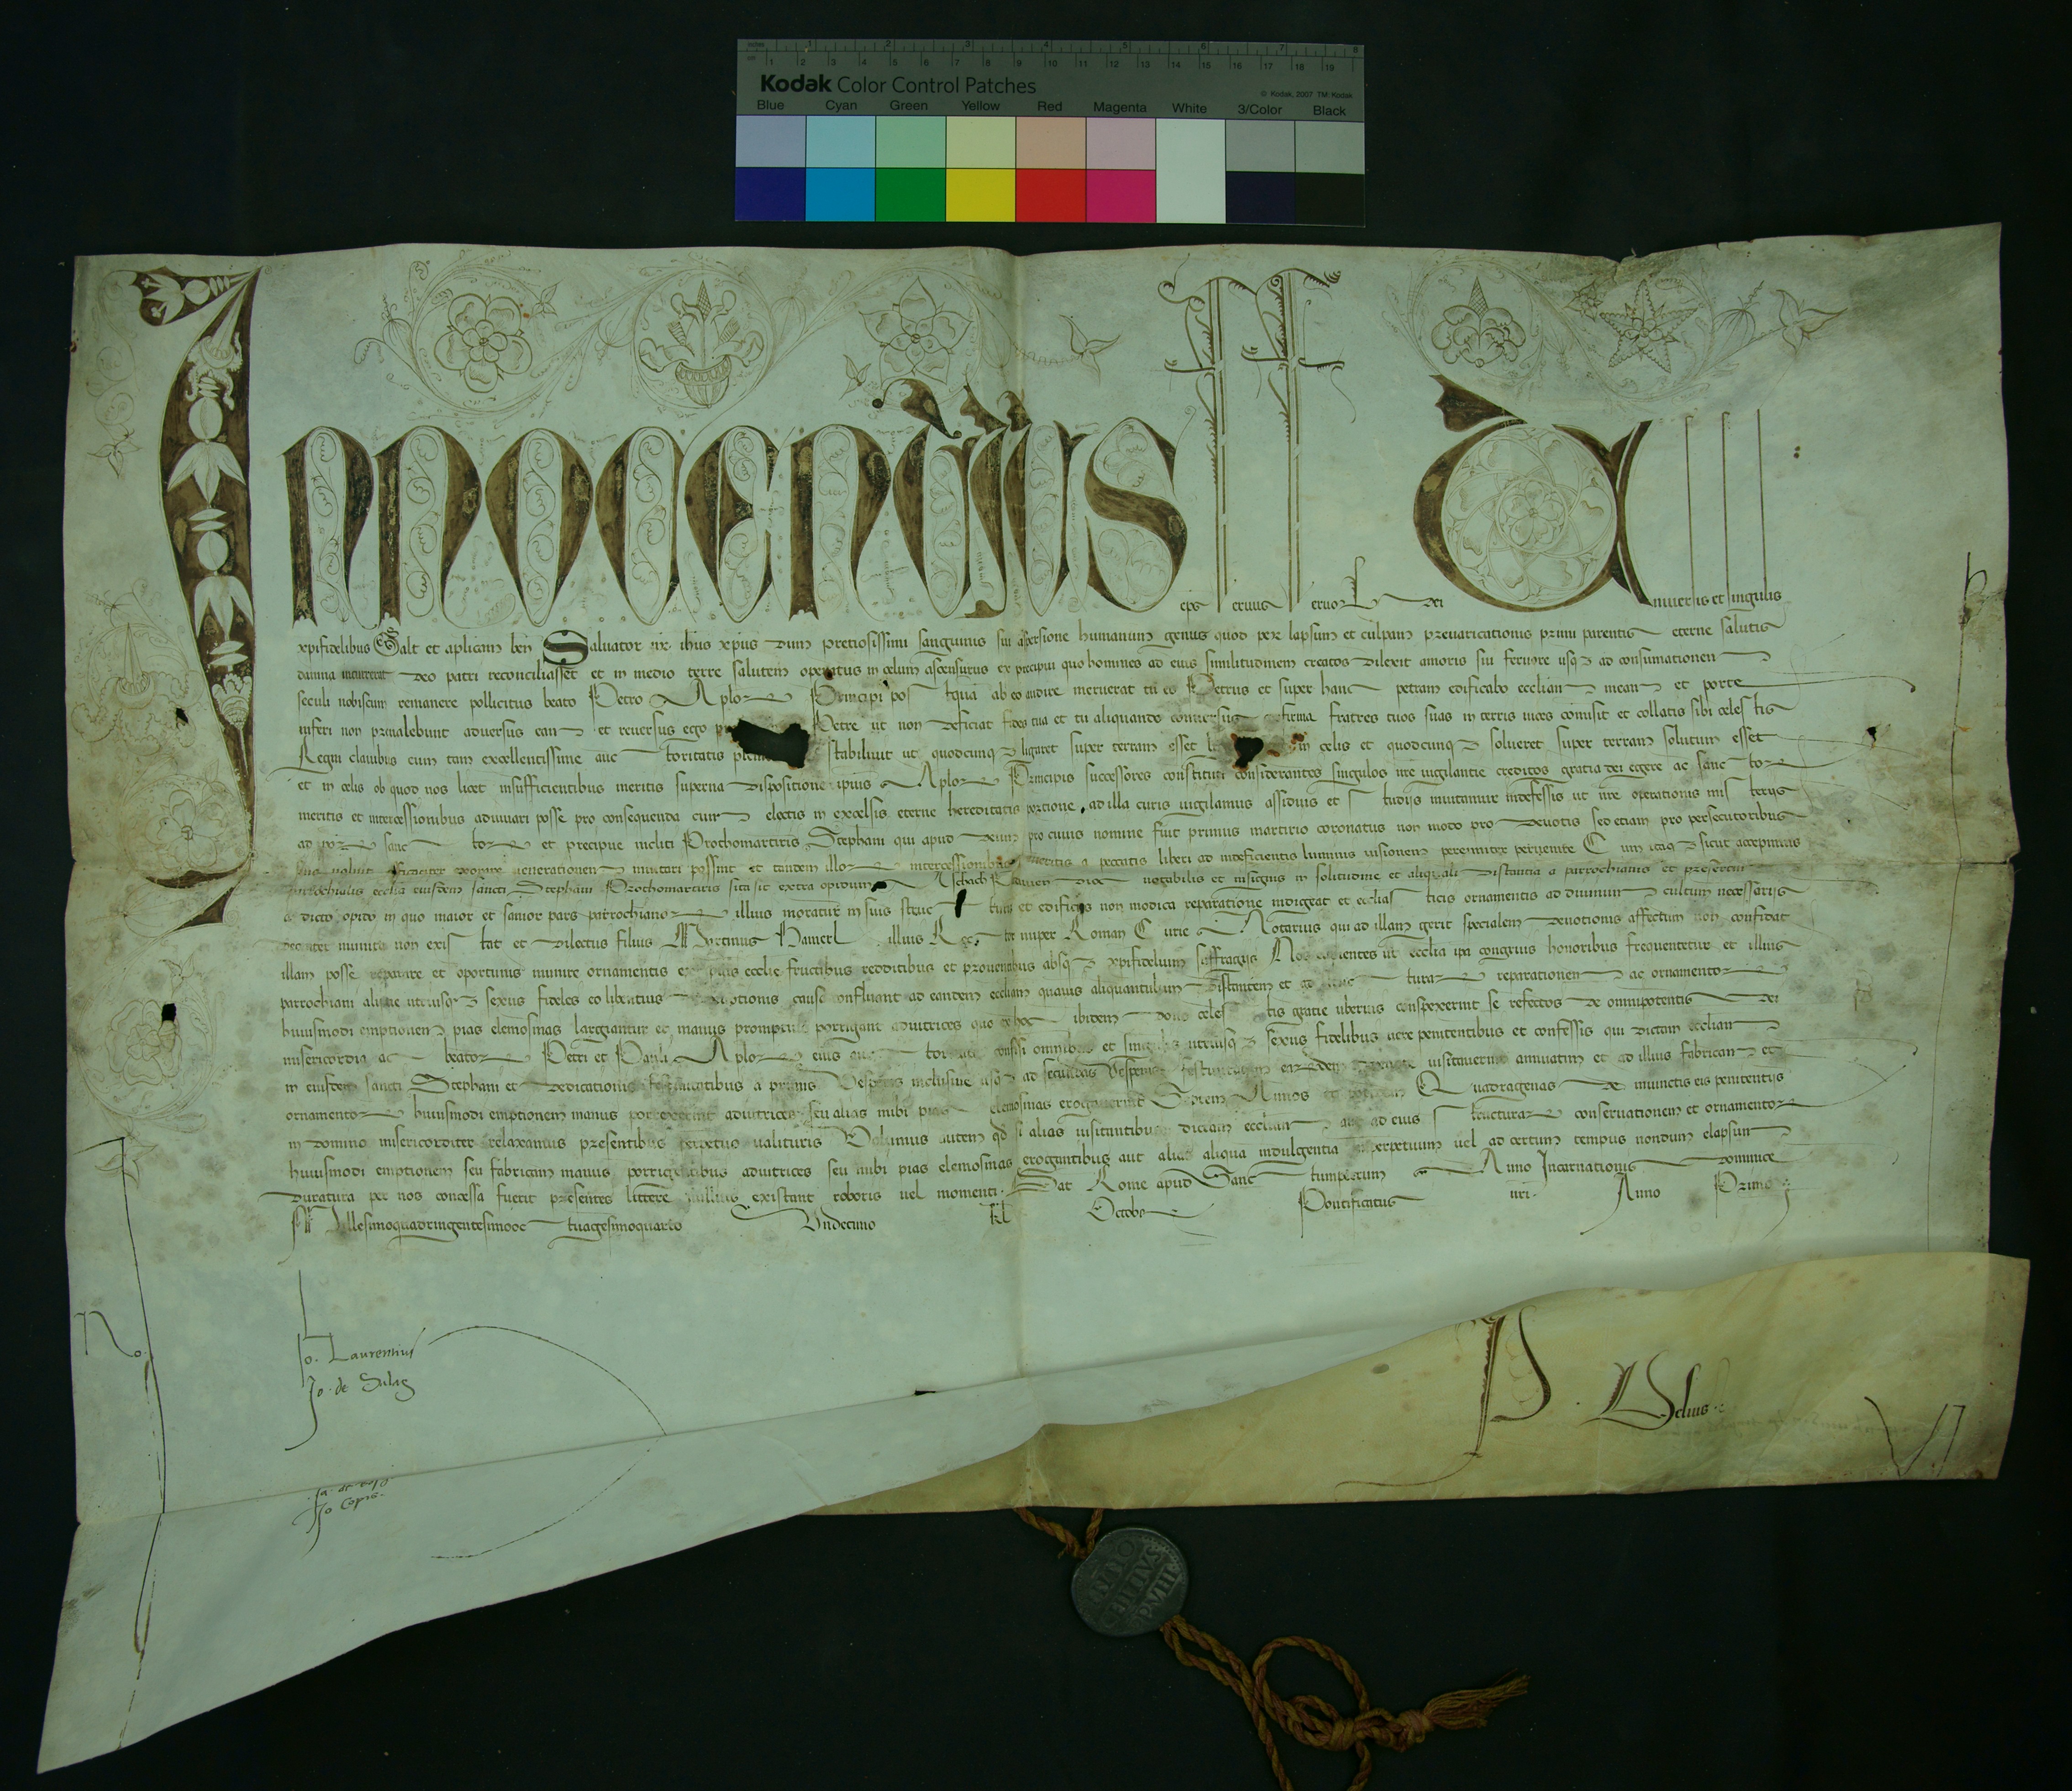 inches 1 2 3 4 5 6 7 8
cm 1 2 3 4 5 6 7 8 9 10 11 12 13 14 15 16 17 18 19
Kodak Color Control Patches
© Kodak, 2007 TM: Kodak
Blue Cyan Green Yellow Red Magenta White 3/Color Black
Innocentius eps servus servor dei Universis et singulis
xpifidelibus Salt et aplicam ben Salvator nr ihus xpus dum pretiosissimi sanguinis sui aspersione humanum genus quod per lapsum et culpam prevaricationis primi parentis eterne salutis
damna incurrerat deo patri reconciliasset et in medio terre salutem operatus in celum ascensurus ex precipui quo homines ad eius similitudinem creatos dilexit amoris sui fervore usqz ad consumationem
seculi nobiscum remanere pollicitus beato Petro Aplor Principi postqua ab eo audire meruerat tu es Petrus et super hanc petram edificabo eccliam meam et porte
inferi non prevalebunt adversus eam et reversus ego Petre ut non deficiat fides tua et tu aliquando conversus confirma fratres tuos suas in terris vices comisit et collatis sibi celestis
Regni clavibus eum tam excellentissime auctoritatis stabilivit ut quodcunqz ligaret super terram esset in celis et quodcunqz solveret super terram solutum esset
et in celis ob quod nos licet insufficientibus meritis superna dispositione ipius Aplor Principis successores constituti considerantes singulos nre vigilantie creditos gratia dei egere ac sanctor
meritis et intercessionibus adiuvari posse pro consequenda cum electis in excelsis eterne hereditatis portione ad illa curis vigilamus assiduis et studijs invitamur indefessis ut nre operationis misterijs
ad sanctor et precipue incliti Prothomartiris Stephani qui apud deum pro cuius nomine fuit primus martirio coronatus non modo pro devotis sed etiam pro persecutoribus
venerationem invitari possint et tandem illor intercessionibus meritis a peccatis liberi ad indeficientis luminis visionem pervenire Cum itaqz sicut accepimus
parrochialis ecclia eiusdem sancti Stephani Prothomartiris sita sit extra opidum Aschach dioc notabilis et insignis in solitudine et aliquali distantia a parrochianis et presertim
a dicto opido in quo maior et sanior pars parrochianor illius moratur in suis structuris et edificiis non modica reparatione indigeat et ecclasticis ornamentis ad divinum cultum necessarijs
decenter munita non existat et dilectus filius Martinus Hamerl illius Rector nuper Roman Curie Notarius qui ad illam gerit specialem devotionis affectum non confidat
illam posse reparare et oportunis munire ornamentis ex ipius ecclie fructibus redditibus et proventibus absqz xpifidelium suffragijs Nos cupientes ut ecclia ipa congruis honoribus frequentetur et illius
parrochiani aliique utriusqz sexus fideles eo libentius devotionis causa confluant ad eandem eccliam quavis aliquantulum distantem et ad structurar reparationem ac ornamentor
huiusmodi emptionem pias elemosinas largiantur et manus promptius porrigant adiutrices quo ex hoc ibidem dono celestis gratie uberius conspexerint se refectos de omnipotentis dei
misericordia ac beator Petri et Pauli Aplor eius auctoritate confisi omnibus et singulis utriusqz sexus fidelibus vere penitentibus et confessis qui dictam eccliam
in eiusdem sancti Stephani et dedicationis festivitatibus a primis Vesperis inclusive usqz ad secundas Vesperas festivitatum earundem visitaverint annuatim et ad illius fabricam et
ornamentor huiusmodi emptionem manus porrexerint adiutrices seu alias inibi pias elemosinas erogaverint Septem Annos et totidem Quadragenas de iniunctis eis penitentijs
in domino misericorditer relaxamus presentibus perpetuo valituris Volumus autem qd si alias visitantibus dictam eccliam aut ad eius structurar conservationem et ornamentor
huiusmodi emptionem seu fabricam manus porrigentibus adiutrices seu inibi pias elemosinas erogantibus aut alias aliqua indulgentia imperpetuum vel ad certum tempus nondum elapsum
duratura per nos concessa fuerit presentes littere nullius existant roboris vel momenti Dat Rome apud Sanctumpetrum Anno Incarnationis dominice
Millesimoquadringentesimooctuagesimoquarto Undecimo Kl Octobr Pontificatus nri Anno Primo
No.
Io. Laurentius
Jo. de Salas
Jo Copis
P. Velius
INNO
CENTIVS
PP VIII